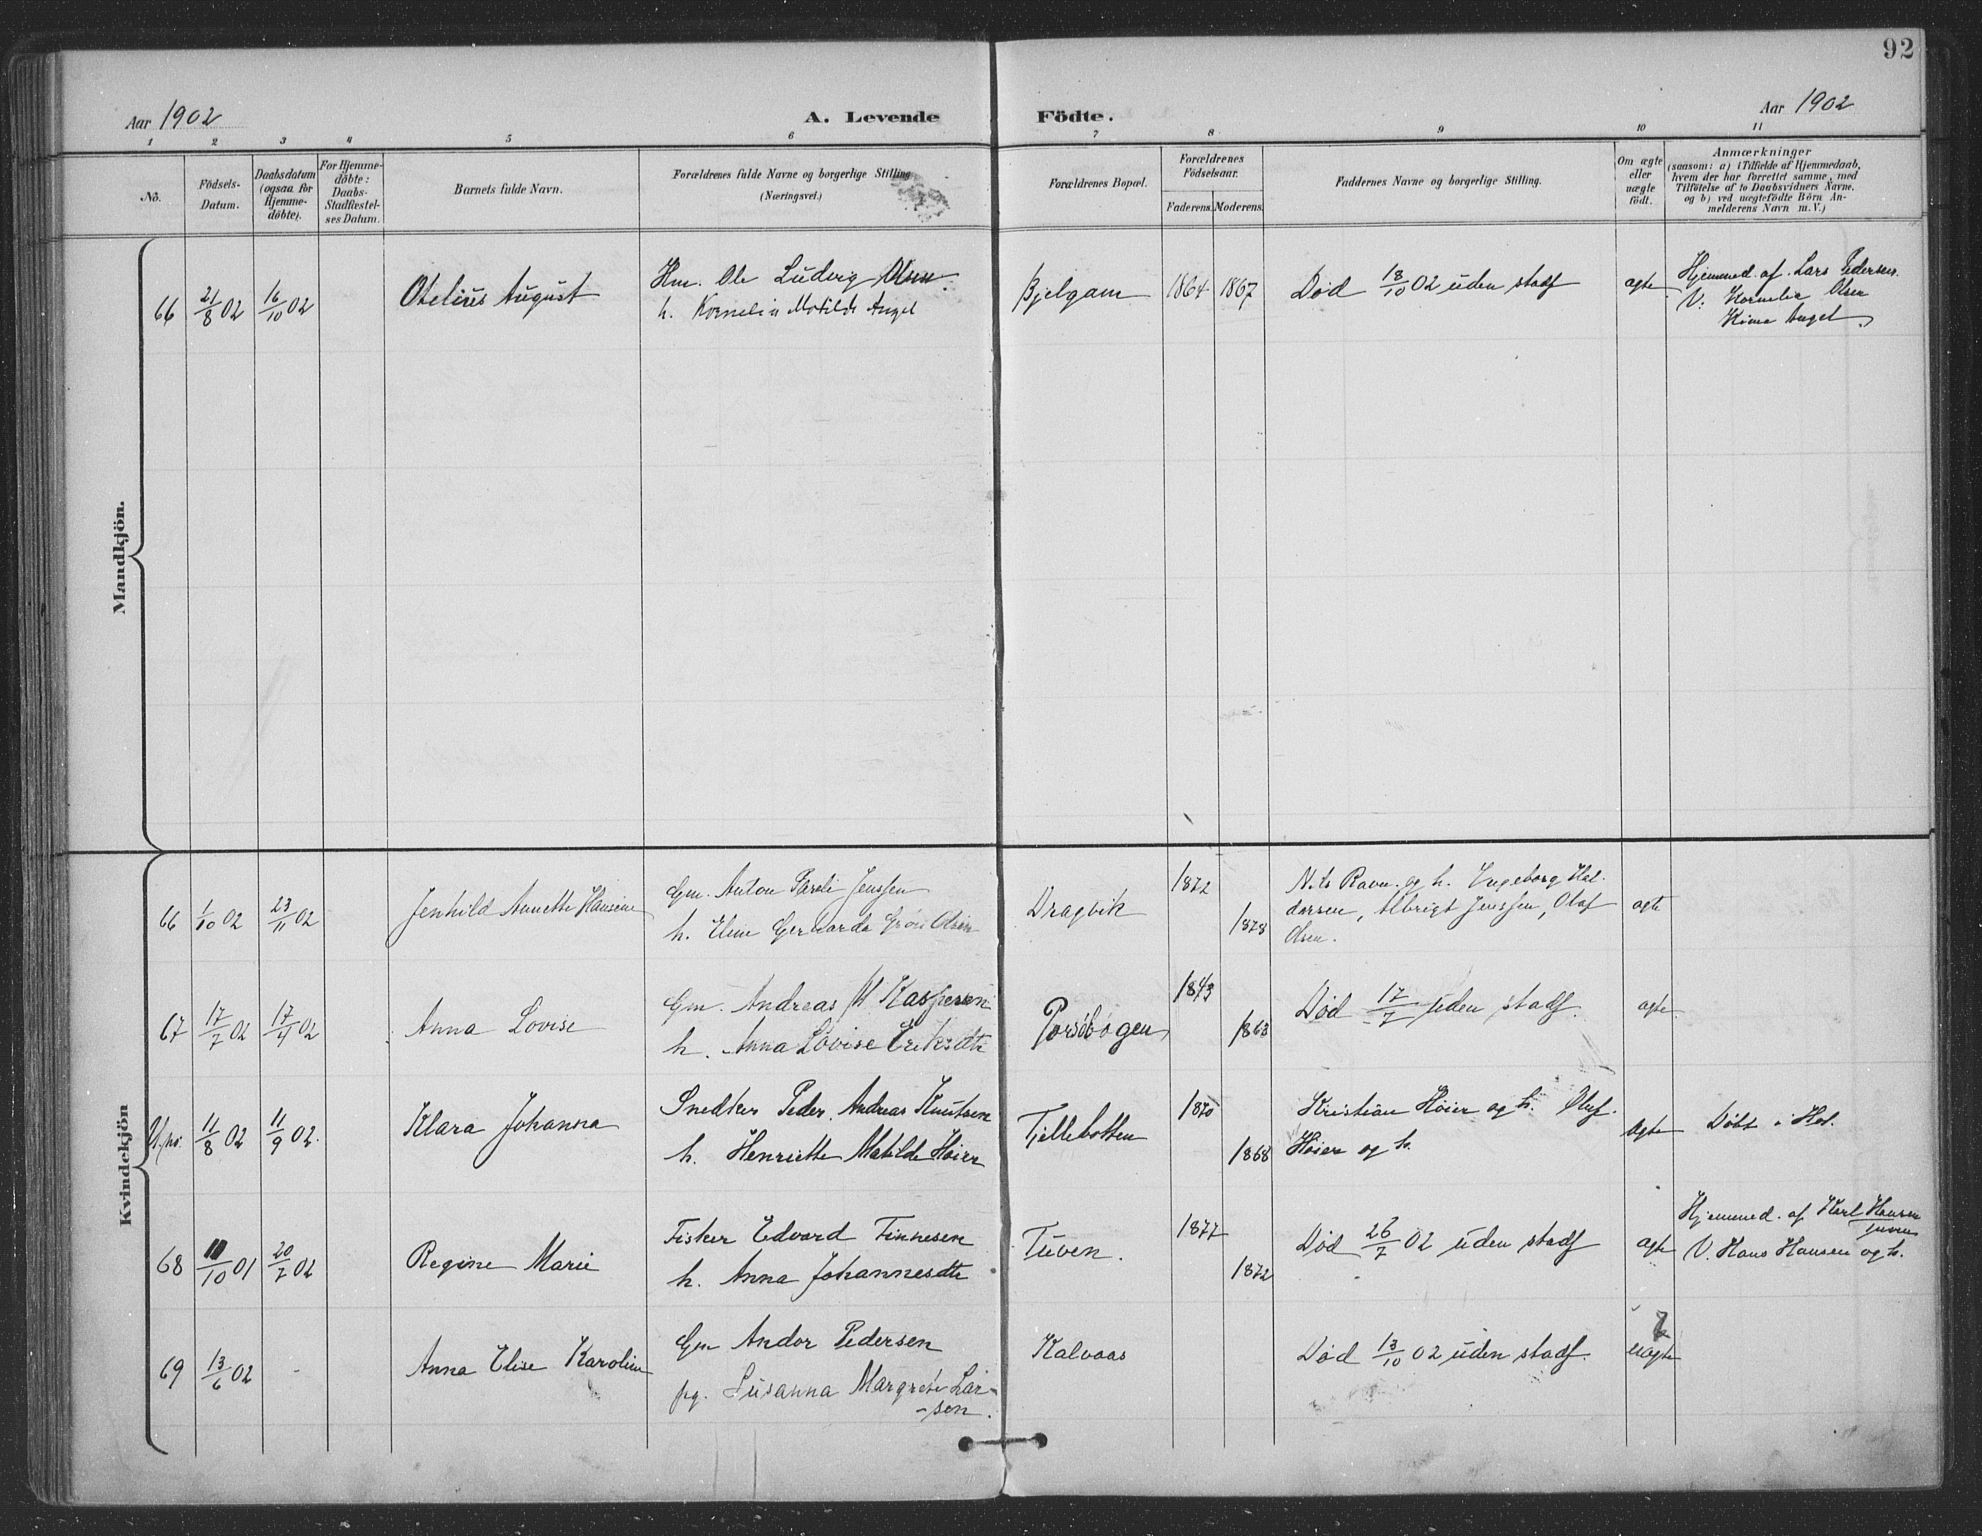 92
Aar 1902
A. Levende Födte.
Aar 1902
1 2 3 4 5 6 7 8 9 10 11
No.
Födsels-
Datum.
Daabsdatum
(ogsaa for
Hjemme-
döbte).
For Hjemme-
döbte:
Daabs-
Stadfæstel-
ses Datum.
Barnets fulde Navn.
Forældrenes fulde Navne og borgerlige Stilling
(Næringsvei.)
Forældrenes Bopæl.
Forældrenes
Födselsaar.
Faderens. Moderens.
Faddernes Navne og borgerlige Stilling.
Om ægte
eller
uægte
födt.
Anmærkninger
(saasom: a) i Tilfælde af Hjemmedaab,
hvem der har forrettet samme, med
Tilföielse af to Daabsvidners Navne,
og b) ved uægtefödte Börn An-
melderens Navn m. V.)
Mandkjön.
66 21/8 02 16/10 02 Otelius August
Hm. Ole Ludvig Olsen.
h. Kornelia Matilde Angel
Bjelgam 1864 1867 Død 18/10 02 uden stadf ægte
Hjemmed. af. Lars Pedersen.
V: Kornelie Olsen
Angel
Kvindekjön
66 1/10 02 23/11 02 Jenhild Annette Hansine
Gm. Anton Jenssen
h. Gerharda Olsen
Dragvik 1872 1878
Nils Ravn. og h. Engeborg Hal-
dorsen, Albrigt Jenssen, Olaf
Olsen.
ægte
67 17/7 02 17/7 02 Anna Lovise
Gm. Andreas M Kaspersen
h. Anna Lovise Eriksdtr
1863 Død 17/7 uden stadf. ægte
11/8 02 11/9 02. Klara Johanna
Snedker Peder Andreas Knutsen
h. Henriette Matilde Høier
Tjellebotten 1870 1868
Kristian Høier og h. Oluf.
Høier og h.
ægte Døbt i Hol.
68 11/10 01 20/7 02 Regine Marie
Fisker Edvard Finnesen
h. Anna Johannesdtr
Tuven. 1877 1872
Død 26/7 02 uden stadf ægte
Hjemmed. af Karl Hansen
Tuven
V. Hans Hansen og h.
69 13/6 02 - Anna Elise Karoline
Gm Andor Pedersen
pg. Susanna Margrete Lar-
-sen.
Kalvaas Død 13/10 02 uden stadf. uægte